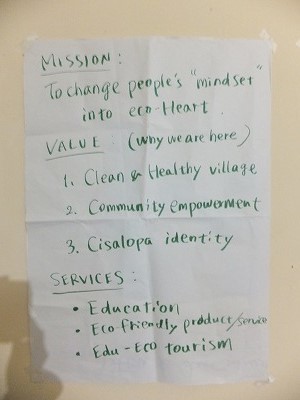 MISSION :
To change people's "mindset"
into eco-Heart
VALUE : (why we are here)
1. Clean & Healthy village
2. Community empowerment
3. Cisalopa identity
SERVICES :
• Education
• Eco friendly product/service
• Edu-Eco tourism